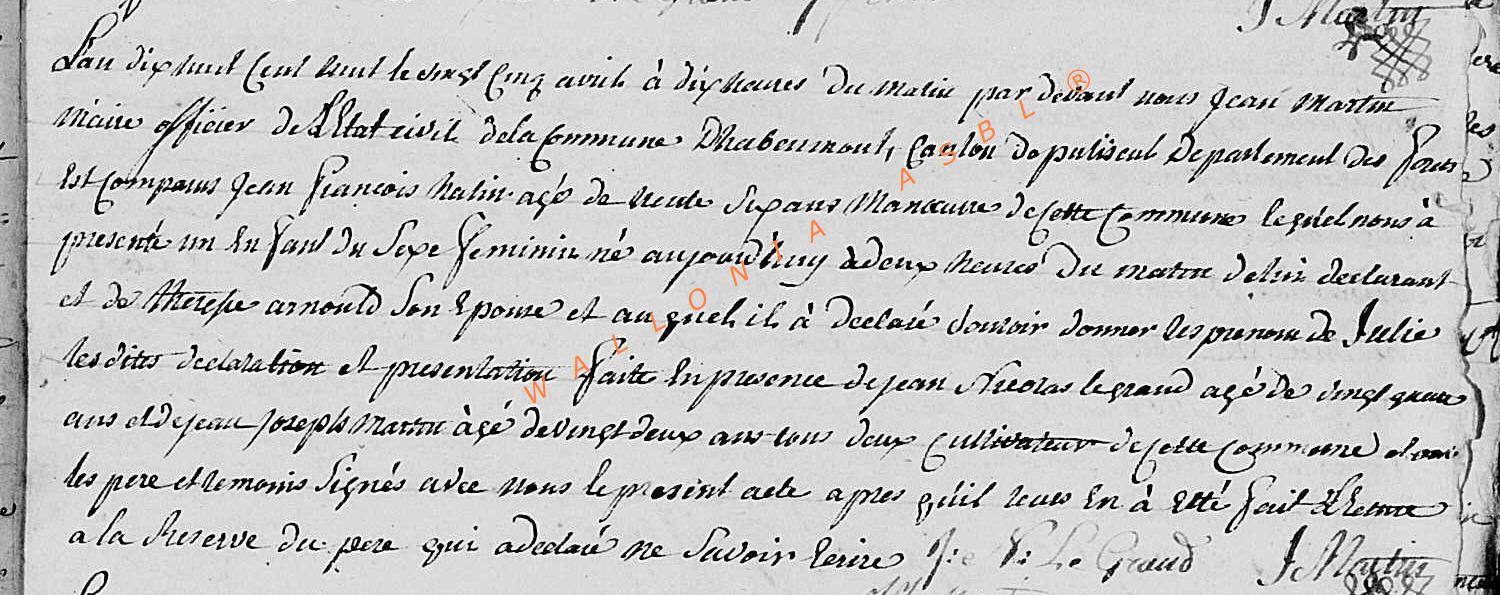 J Martin
L'an dix huit Cent huit le vingt Cinq avril à dix heures du matin par devant nous Jean Martin
Maire officier de L'Etat civil de la Commune D'habeumont, Canton de paliseul Departement des forets
Est Comparus Jean françois halin agé de trente Six ans Manœuvre de Cette Commune lequel nous à
presenté un Enfant du Sexe feminin né aujourd'huy à deux heures du matin de luy declarant
et de therese arnould Son Epouse et au quel il à declaré vouloir donner les prenom de Julie
les dites declaration et presentation faite En presence de jean Nicolas le grand agé de vingt quatre
ans et de jean joseph Martin àgé de vingt deux ans tous deux Cultivateur de Cette Commune et ont
les pere et temoins Signés avec nous le present acte apres qu'il leurs En à Etté fait lecture
a la Reserve du pere qui a declaré ne Savoir Ecrire J: N: Le Grand J Martin
WALLONIA ASBL ®